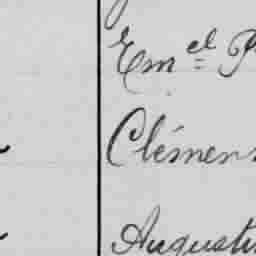 Em.el P
Clémens
Augustin